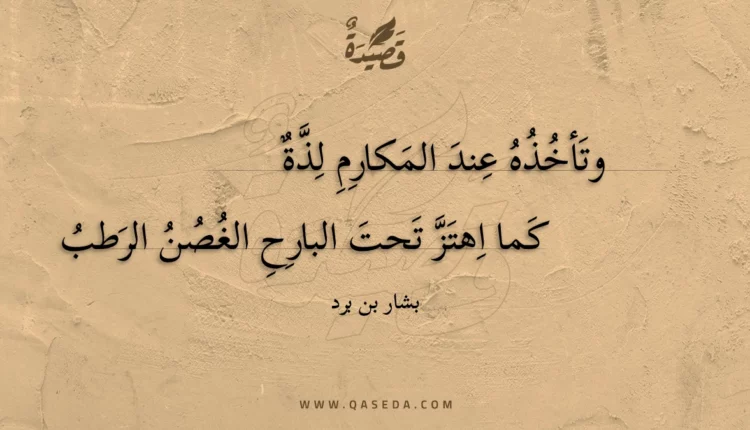 قَصِيدَةٌ
وتَأخُذُهُ عِندَ المَكارِمِ لِذَّةٌ
كَما اِهتَزَّ تَحتَ البارِحِ الغُصُنُ الرَطبُ
بشار بن برد
WWW.QASEDA.COM